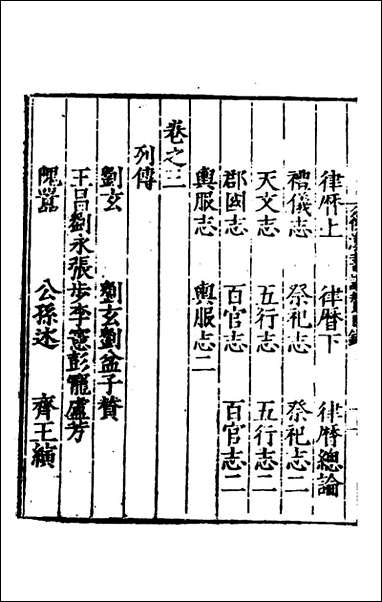 律曆上 律曆下 律曆總論
禮儀志 祭祀志 祭祀志二
天文志 五行志 五行志二
郡國志 百官志 百官志二
輿服志 輿服志二
卷之三
列傳
劉玄 劉玄劉盆子贊
王昌劉永張步李憲彭寵盧芳
隗囂 公孫述 齊王縯